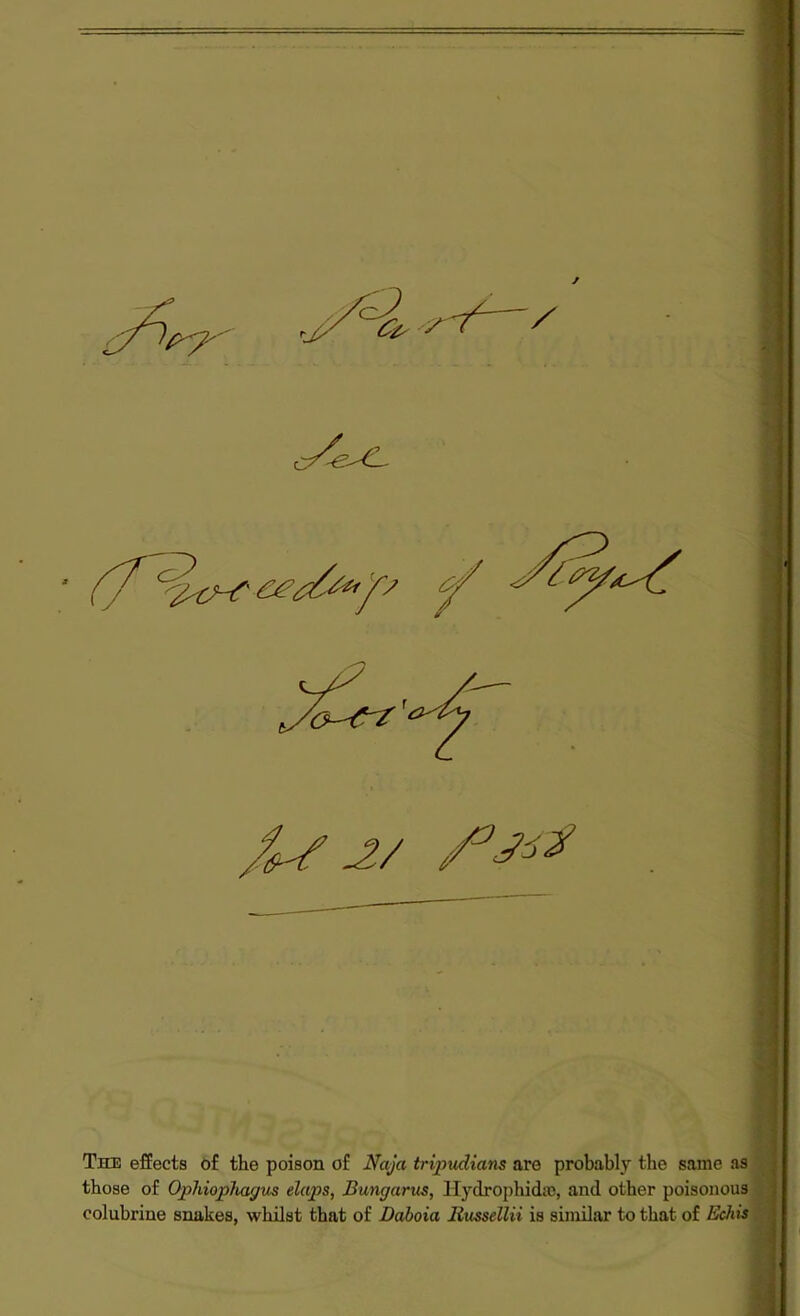 For Part 1
See
Proceedings of Royal
Society
Vol 21 P 358
The effects of the poison of Naja tripudians are probably the same as
those of Ophiophagus elaps, Bungarus, Hydrophidæ, and other poisonous
colubrine snakes, whilst that of Daboia Russellii is similar to that of Echis